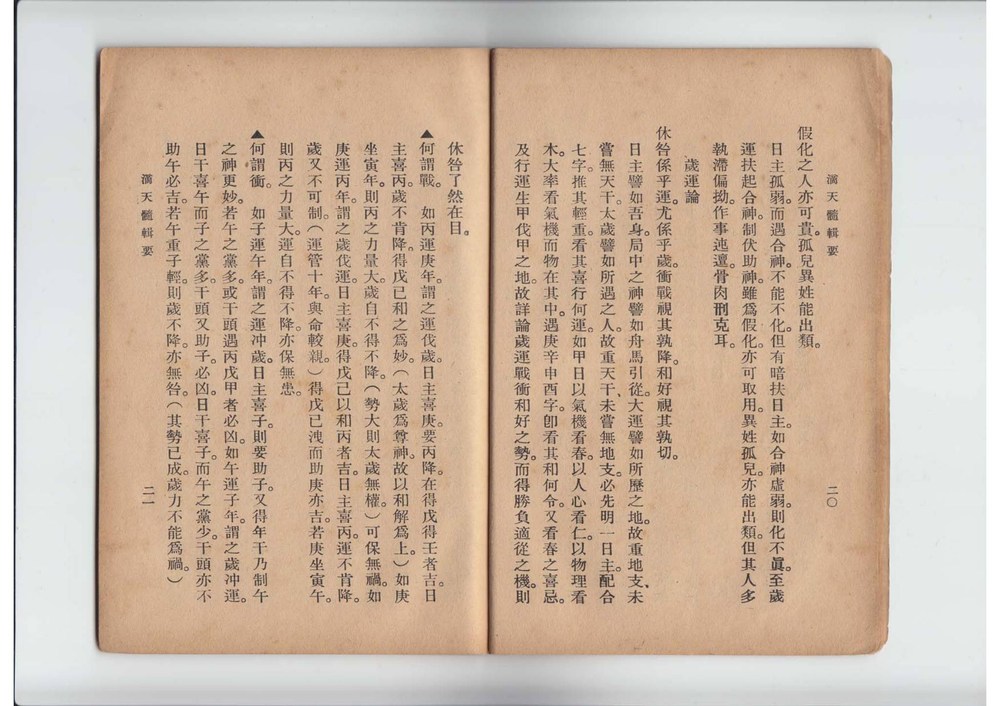 滴天髓輯要
二〇
假化之人亦可貴。孤兒異姓能出類。
日主孤弱。而遇合神不能不化。但有暗扶日主。如合神虛弱。則化不眞。至歲
運扶起合神。制伏助神。雖爲假化。亦可取用。異姓孤兒。亦能出類。但其人多
執滯偏拗。作事迍邅。骨肉刑克耳。
歲運論
休咎係乎運。尤係乎歲。衝戰視其孰降。和好視其孰切。
日主譬如吾身。局中之神。譬如舟馬引從。大運譬如所歷之地。故重地支、未
嘗無天干。太歲譬如所遇之人。故重天干、未嘗無地支。必先明一日主。配合
七字。推其輕重。看其喜行何運。如甲日以氣機看春。以人心看仁。以物理看
木。大率看氣機。而物在其中。遇庚辛申酉字。卽看其和何令。又看春之喜忌。
及行運生甲伐甲之地。故詳論歲運戰衝和好之勢。而得勝負適從之機。則
休咎了然在目。
▲何謂戰。　如丙運庚年。謂之運伐歲。日主喜庚。要丙降。在得戊得壬者吉。日
主喜丙。歲不肯降。得戊已和之爲妙。（太歲爲尊神。故以和解爲上。）如庚
坐寅年。則丙之力量大。歲自不得不降。（勢大則太歲無權）可保無禍。如
庚運丙年。謂之歲伐運。日主喜庚。得戊己以和丙者吉。日主喜丙。運不肯降。
歲又不可制。（運管十年。與命較親）得戊已洩而助庚亦吉。若庚坐寅午。
則丙之力量大。運自不得不降。亦保無患。
▲何謂衝。　如子運午年。謂之運沖歲。日主喜子。則要助子。又得年干乃制午
之神更妙。若午之黨多。或干頭遇丙戊甲者必凶。如午運子年。謂之歲沖運。
日干喜午而子之黨多。干頭又助子。必凶。日干喜子。而午之黨少。干頭亦不
助午必吉。若午重子輕。則歲不降。亦無咎（其勢已成。歲力不能爲禍。）
滴天髓輯要
二一